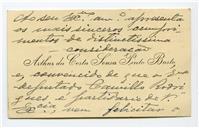 Ao seu Ex.mo am.º apresenta
os mais sinceros cumpri-
mentos de distinctissima
consideração
Arthur da Costa Sousa Pinto Basto
e, convencido de que o
deputado Camillo Rodri-
gues é partidario de
vem felicitar o